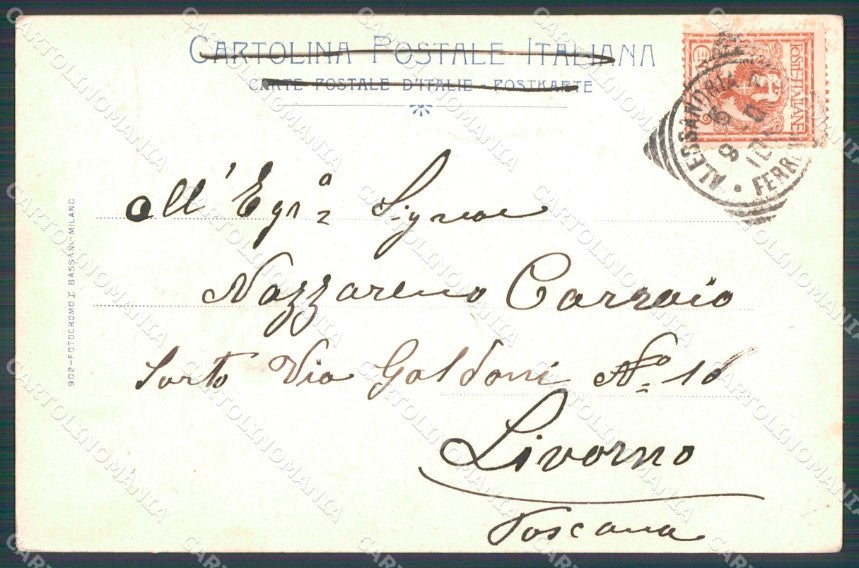 CARTOLINA POSTALE ITALIANA
CARTE POSTALE D'ITALIE - POSTKARTE
POSTE ITALIANE
ALESSANDRIA
FERROVIA
All' Egr.a
Nazzareno
Via Goldoni No 16
Livorno
Toscana
902-FOTOCROMO I. BASSANI-MILANO
CARTOLINOMANIA